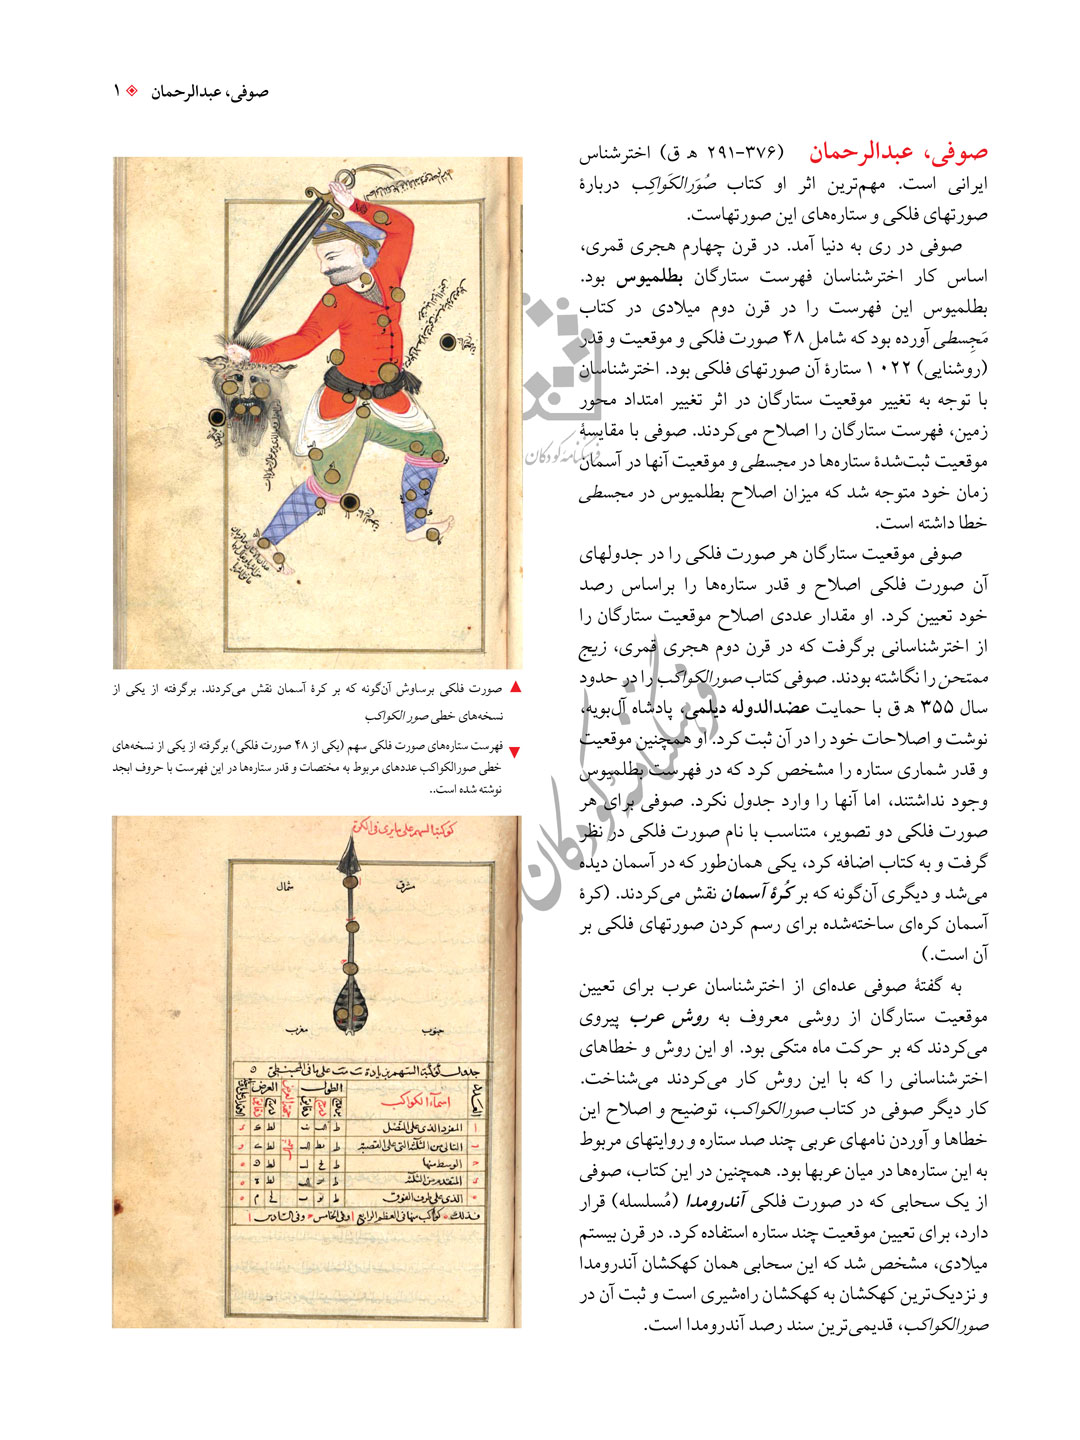 صوفی، عبدالرحمان ۱
صوفی، عبدالرحمان (۳۷۶-۲۹۱ ه‍ ق) اخترشناس
ایرانی است. مهم‌ترین اثر او کتاب صُوَرالکَواکِب دربارهٔ
صورتهای فلکی و ستاره‌های این صورتهاست.
صوفی در ری به دنیا آمد. در قرن چهارم هجری قمری،
اساس کار اخترشناسان فهرست ستارگان بطلمیوس بود.
بطلمیوس این فهرست را در قرن دوم میلادی در کتاب
مَجِسطی آورده بود که شامل ۴۸ صورت فلکی و موقعیت و قدر
(روشنایی) ۱۰۲۲ ستارهٔ آن صورتهای فلکی بود. اخترشناسان
با توجه به تغییر موقعیت ستارگان در اثر تغییر امتداد محور
زمین، فهرست ستارگان را اصلاح می‌کردند. صوفی با مقایسهٔ
موقعیت ثبت‌شدهٔ ستاره‌ها در مجسطی و موقعیت آنها در آسمان
زمان خود متوجه شد که میزان اصلاح بطلمیوس در مجسطی
خطا داشته است.
صوفی موقعیت ستارگان هر صورت فلکی را در جدولهای
آن صورت فلکی اصلاح و قدر ستاره‌ها را براساس رصد
خود تعیین کرد. او مقدار عددی اصلاح موقعیت ستارگان را
از اخترشناسانی برگرفت که در قرن دوم هجری قمری، زیج
ممتحن را نگاشته بودند. صوفی کتاب صورالکواکب را در حدود
سال ۳۵۵ ه‍ ق با حمایت عضدالدوله دیلمی، پادشاه آل‌بویه،
نوشت و اصلاحات خود را در آن ثبت کرد. او همچنین موقعیت
و قدر شماری ستاره را مشخص کرد که در فهرست بطلمیوس
وجود نداشتند، اما آنها را وارد جدول نکرد. صوفی برای هر
صورت فلکی دو تصویر، متناسب با نام صورت فلکی در نظر
گرفت و به کتاب اضافه کرد، یکی همان‌طور که در آسمان دیده
می‌شد و دیگری آن‌گونه که بر کُرهٔ آسمان نقش می‌کردند. (کرهٔ
آسمان کره‌ای ساخته‌شده برای رسم کردن صورتهای فلکی بر
آن است.)
به گفتهٔ صوفی عده‌ای از اخترشناسان عرب برای تعیین
موقعیت ستارگان از روشی معروف به روش عرب پیروی
می‌کردند که بر حرکت ماه متکی بود. او این روش و خطاهای
اخترشناسانی را که با این روش کار می‌کردند می‌شناخت.
کار دیگر صوفی در کتاب صورالکواکب، توضیح و اصلاح این
خطاها و آوردن نامهای عربی چند صد ستاره و روایتهای مربوط
به این ستاره‌ها در میان عربها بود. همچنین در این کتاب، صوفی
از یک سحابی که در صورت فلکی آندرومدا (مُسلسله) قرار
دارد، برای تعیین موقعیت چند ستاره استفاده کرد. در قرن بیستم
میلادی، مشخص شد که این سحابی همان کهکشان آندرومدا
و نزدیک‌ترین کهکشان به کهکشان راه‌شیری است و ثبت آن در
صورالکواکب، قدیمی‌ترین سند رصد آندرومدا است.
صورت فلکی برساوش آن‌گونه که بر کرهٔ آسمان نقش می‌کردند. برگرفته از یکی از
نسخه‌های خطی صور الکواکب
فهرست ستاره‌های صورت فلکی سهم (یکی از ۴۸ صورت فلکی) برگرفته از یکی از نسخه‌های
خطی صورالکواکب عددهای مربوط به مختصات و قدر ستاره‌ها در این فهرست با حروف ابجد
نوشته شده است..
شمال مشرق
مغرب جنوب
العرض الطول
اسماء الکواکب
الوسط منها
فرهنگنامه کودکان